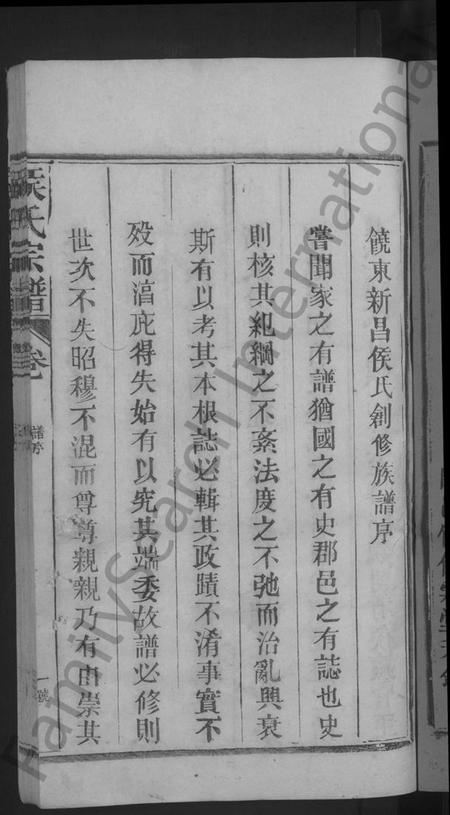 饒東新昌侯氏創修族譜序
嘗聞家之有譜猶國之有史郡邑之有誌也史
則核其紀綱之不紊法度之不弛而治亂興衰
斯有以考其本根誌必輯其政蹟不淆事實不
殁而淯庇得失始有以究其端委故譜必修則
世次不失昭穆不混而尊尊親親乃有由崇其
侯氏宗譜
卷
譜序
一號
FamilySearch International